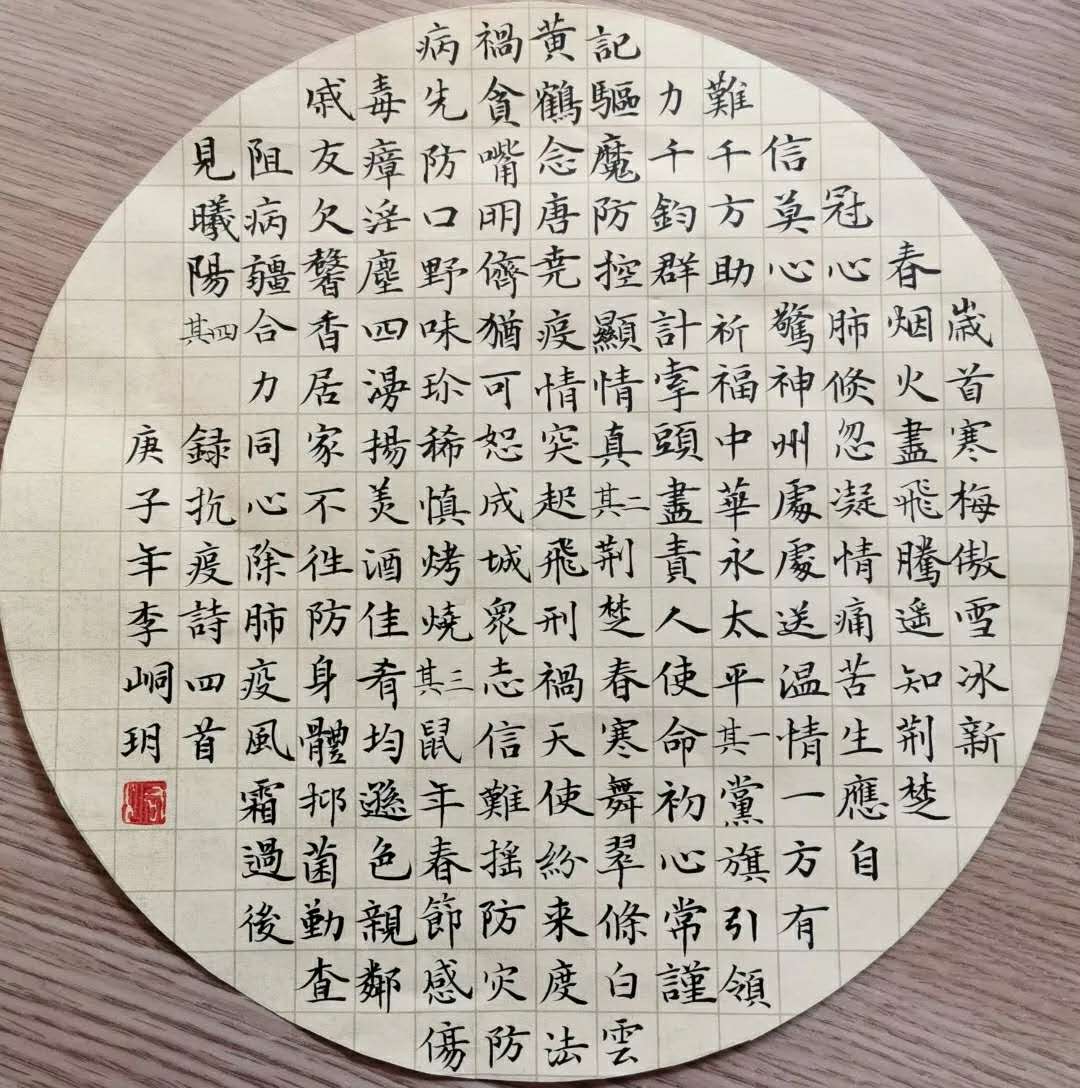 歲首寒梅傲雪冰新
春烟火盡飛騰遥知荆楚
冠心肺倏忽凝情痛苦生應自
信莫心驚神州處處送温情一方有
難千方助祈福中華永太平其一黨旗引領
力千鈞群計牽頭盡責人使命初心常謹
記驅魔防控顯情真其二荆楚春寒舞翠條白雲
黄鶴念唐尭疫情突起飛刑禍天使紛来度法
禍貪嘴明儕猶可恕成城衆志信難摇防灾防
病先防口野味珍稀慎烤燒其三鼠年春節感傷
毒瘴淫塵四漫揚美酒佳肴均遜色親鄰
戚友欠馨香居家不徃防身體抑菌勤查
阻病疆合力同心除肺疫風霜過後
見曦陽其四録抗疫詩四首
庚子年李峒玥